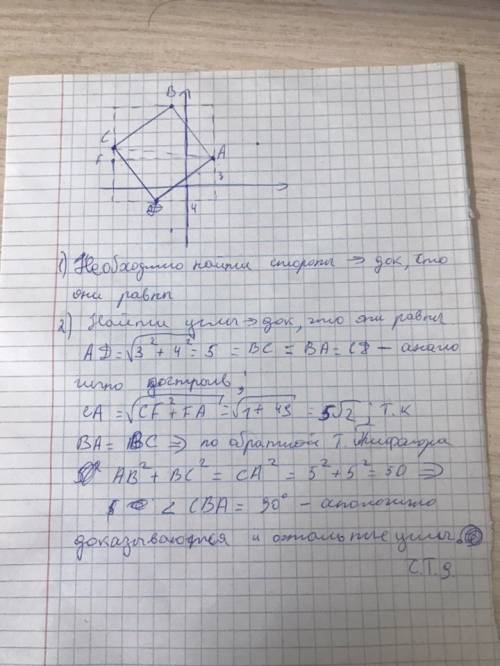 B
C
F
A
3
D
4
1) Необходимо найти стороны ⇒ док, что
они равны
2) Найти углы ⇒ док, что они равны
AD = √3² + 4² = 5 = BC = BA = CD - анало
гично достроив;
CA = √CF² + FA² = √1 + 49 = 5√2; т.к
BA = BC ⇒ по обратной т. Пифагора
AB² + BC² = CA² = 5² + 5² = 50 ⇒
∠ CBA = 90° - аналогично
доказываются и остальные углы.
Ч.Т.Д.